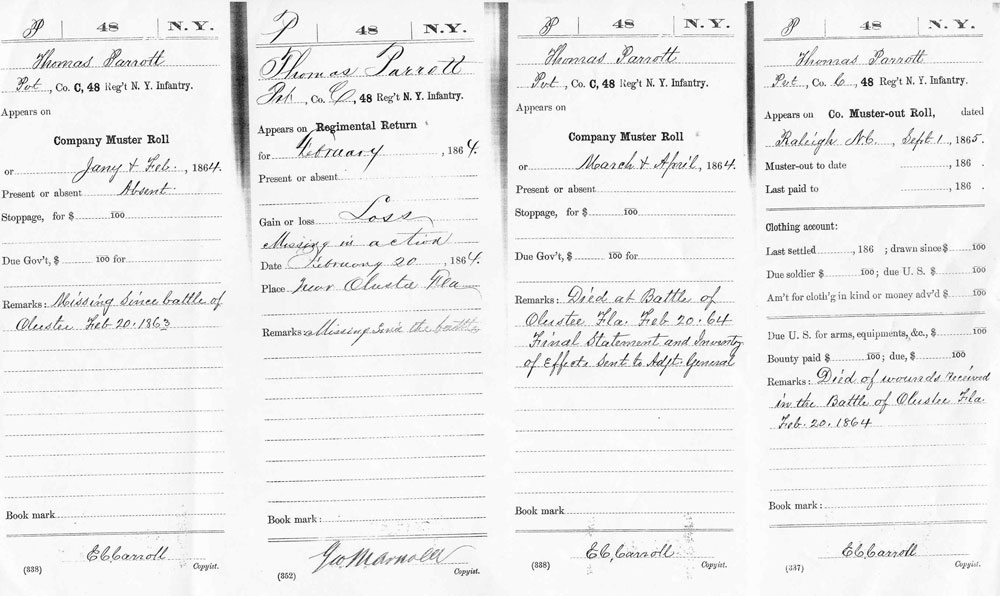 P | 48 | N.Y.
Thomas Parrott
Pvt, Co. C, 48 Reg't N. Y. Infantry.
Appears on
Company Muster Roll
or Jany & Feb., 1864.
Present or absent Absent.
Stoppage, for $ 100
Due Gov't, $ 100 for
Remarks: Missing since battle of
Olustee Feb 20. 1863
Book mark
E C Carroll
(338) Copyist.
P | 48 | N.Y.
Thomas Parrott
Pvt, Co. C, 48 Reg't N. Y. Infantry.
Appears on Regimental Return
for February, 1864.
Present or absent
Gain or loss Loss
Missing in action
Date February 20, 1864.
Place Near Olustee Fla
Remarks: Missing since the battle
Book mark:
Geo
(352) Copyist.
P | 48 | N.Y.
Thomas Parrott
Pvt, Co. C, 48 Reg't N. Y. Infantry.
Appears on
Company Muster Roll
or March & April, 1864.
Present or absent
Stoppage, for $ 100
Due Gov't, $ 100 for
Remarks: Died at Battle of
Olustee, Fla. Feb. 20. 64
Final Statement and Inventory
of Effects Sent to Adjt. General
Book mark:
E C Carroll
(338) Copyist.
P | 48 | N.Y.
Thomas Parrott
Pvt, Co. C, 48 Reg't N. Y. Infantry.
Appears on Co. Muster-out Roll, dated
Raleigh N.C., Sept 1, 1865.
Muster-out to date , 186 .
Last paid to , 186 .
Clothing account:
Last settled , 186 ; drawn since $ 100
Due soldier $ 100; due U. S. $ 100
Am't for cloth'g in kind or money adv'd $ 100
Due U. S. for arms, equipments, &c., $ 100
Bounty paid $ 100; due, $ 100
Remarks: Died of wounds received
in the Battle of Olustee Fla.
Feb. 20. 1864
Book mark:
E C Carroll
(337) Copyist.